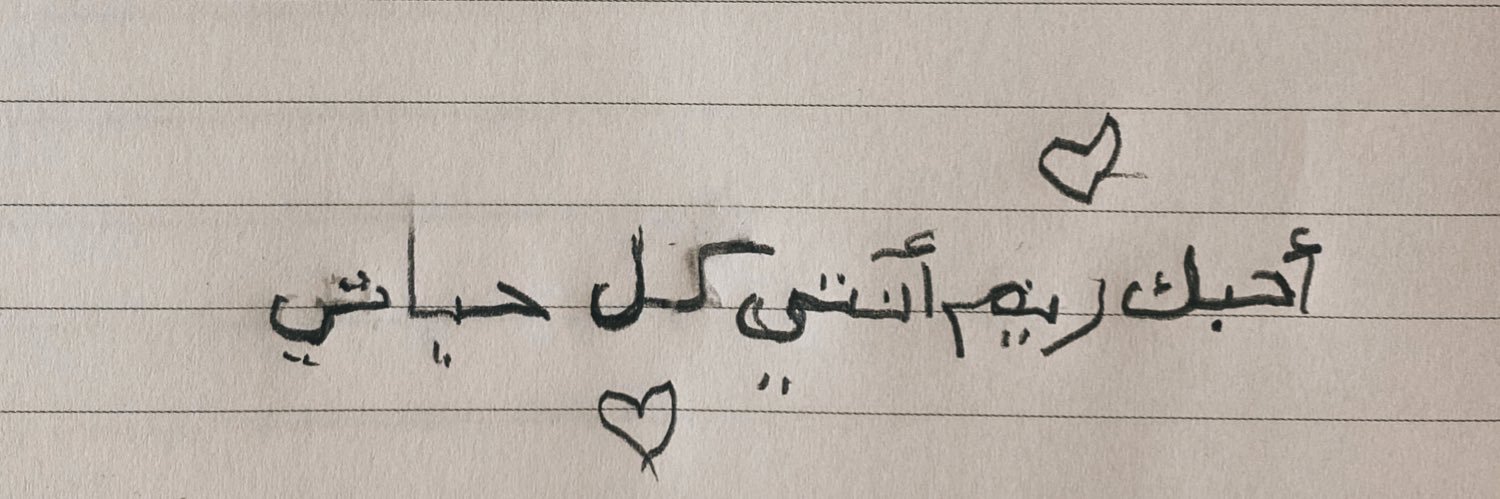 أحبك ريم أنتي كل حياتي